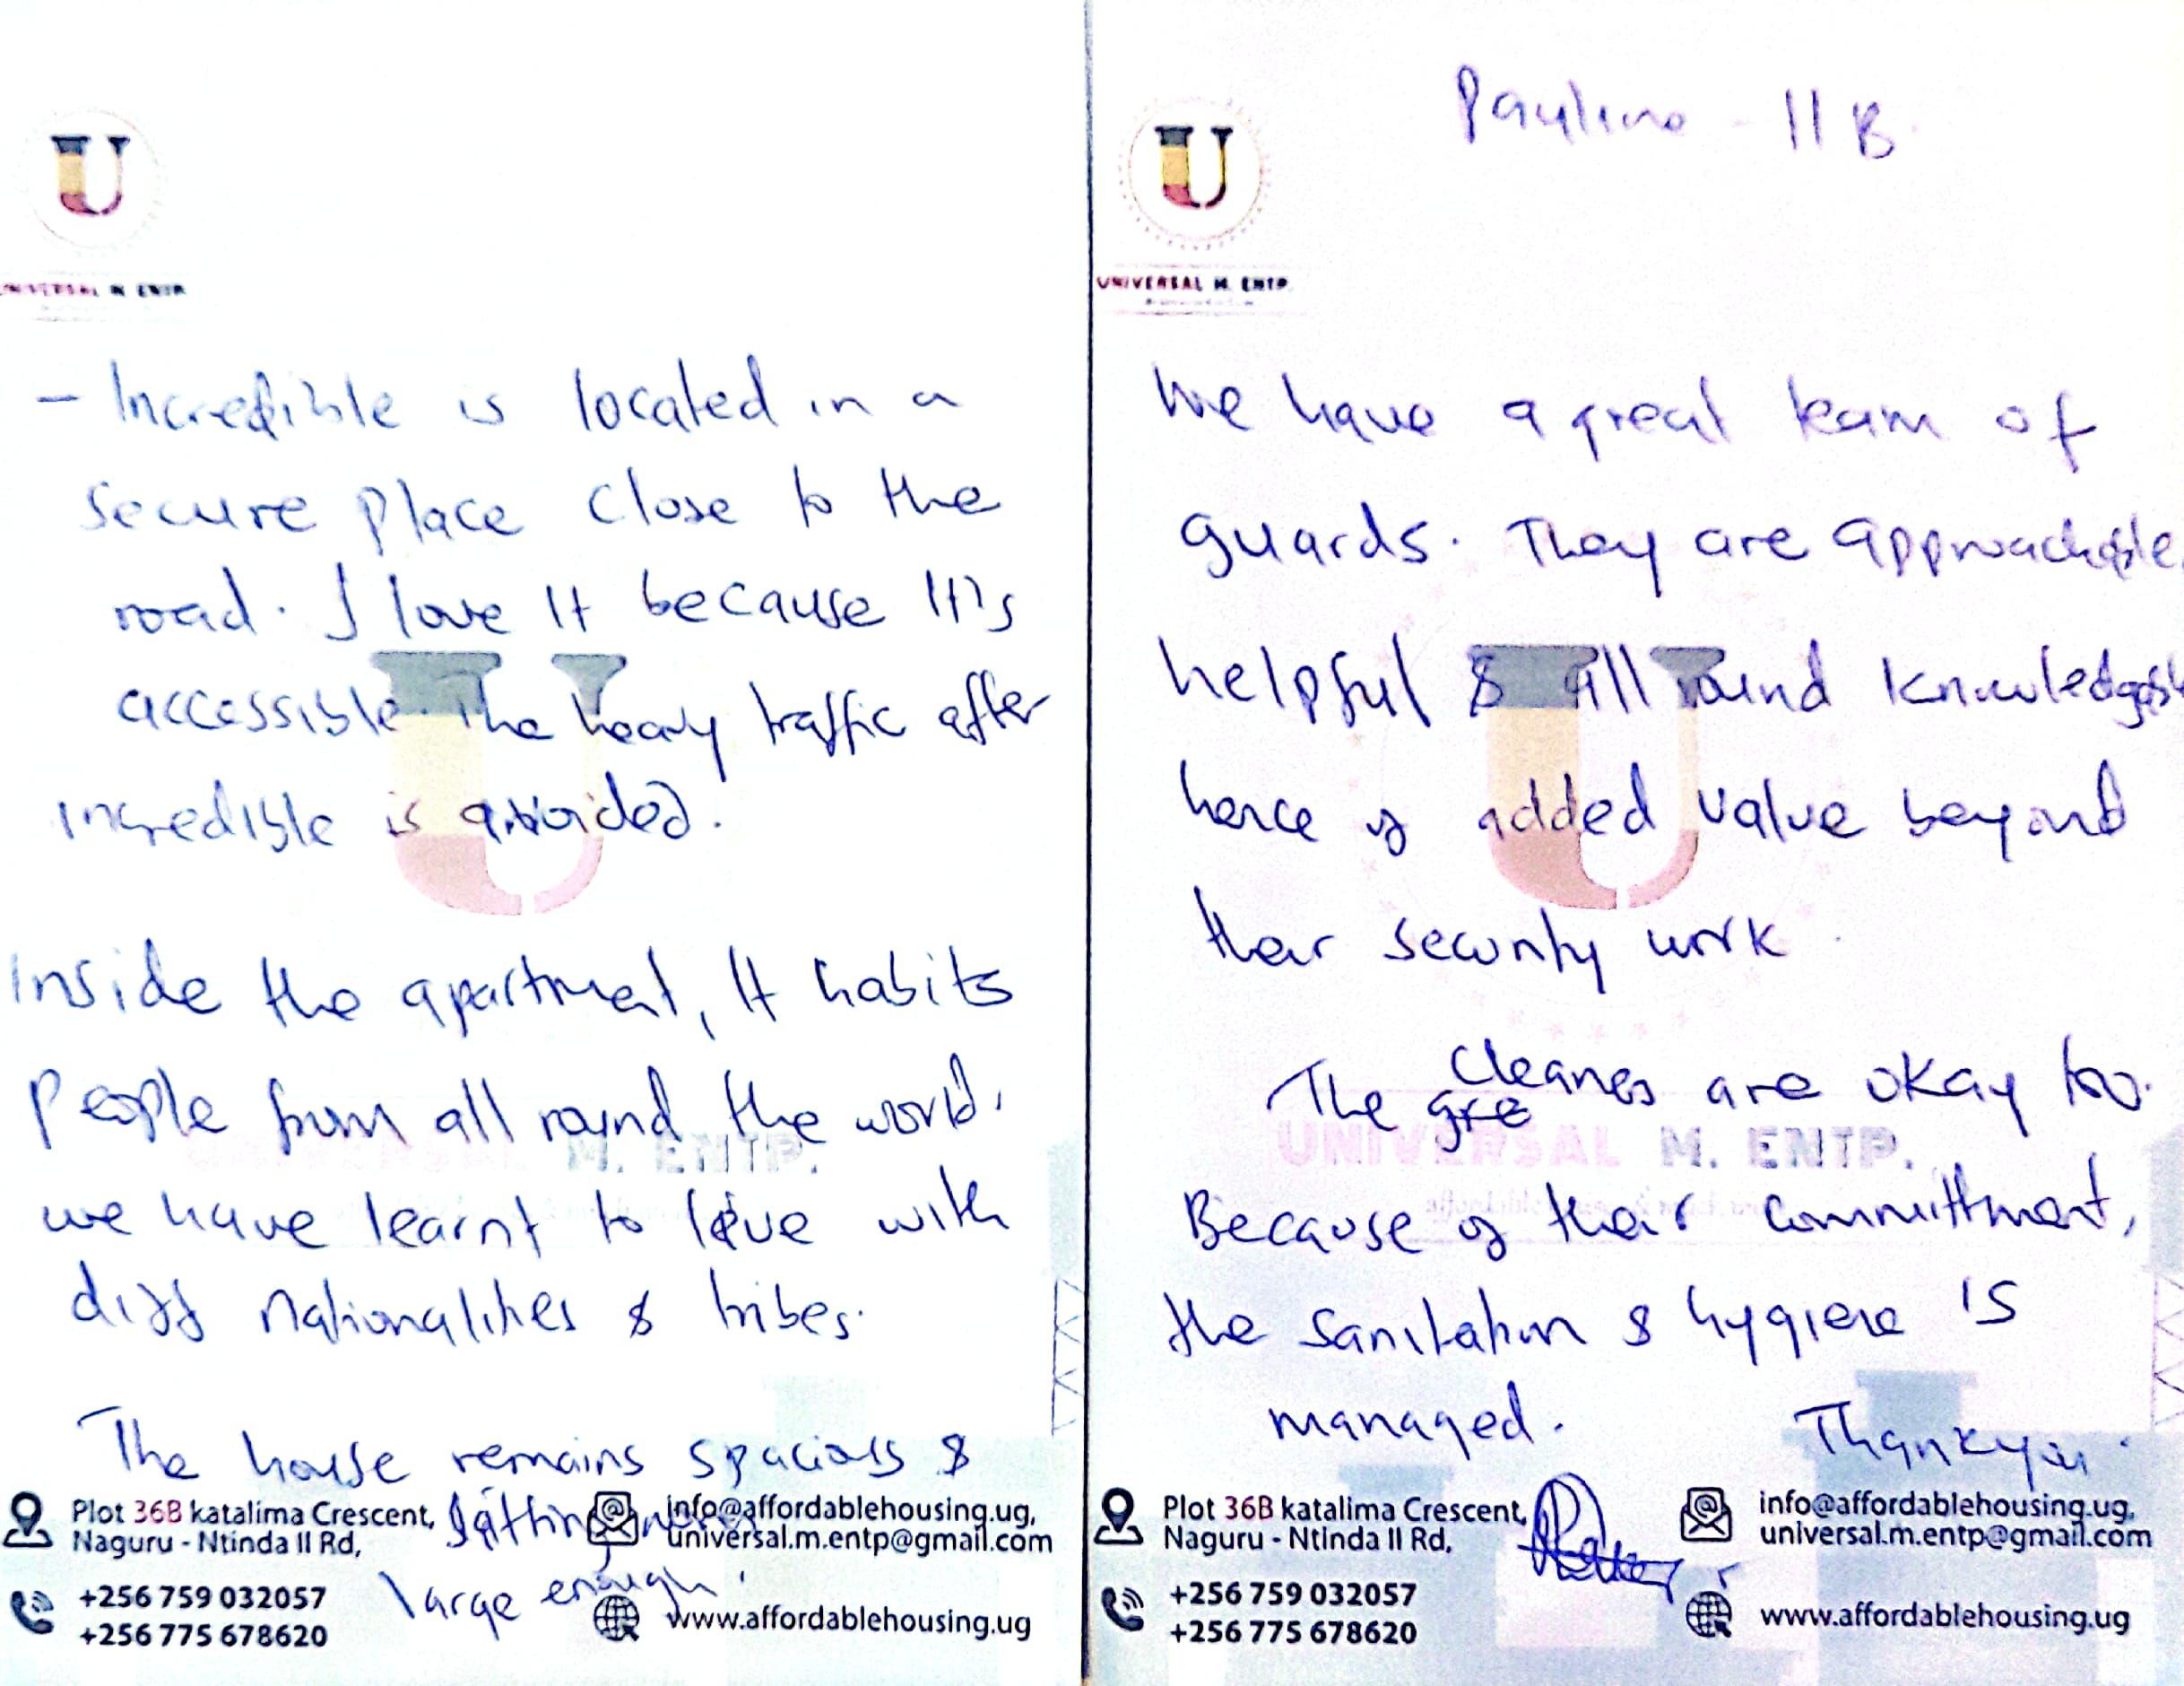 UNIVERSAL M. ENTP.
- Incredible is located in a
secure place close to the
road. I love It because It's
accessible. The heavy traffic after
incredible is avoided.
Inside the apartment, It habits
people from all round the world.
we have learnt to live with
diff nationalities & tribes.
The house remains spacious &
Sitting
large enough.
Plot 36B katalima Crescent,
Naguru - Ntinda II Rd,
+256 759 032057
+256 775 678620
info@affordablehousing.ug,
universal.m.entp@gmail.com
www.affordablehousing.ug
Pauline - 11B
UNIVERSAL M. ENTP.
We have a great team of
guards. They are approachable
helpful & all round knowledgable
hence of added value beyond
their security work.
The cleaners are okay too.
UNIVERSAL M. ENTP.
Because of their committment,
the sanitation & hygiene is
managed.
Thankyou.
Plot 36B katalima Crescent,
Naguru - Ntinda II Rd,
+256 759 032057
+256 775 678620
info@affordablehousing.ug,
universal.m.entp@gmail.com
www.affordablehousing.ug